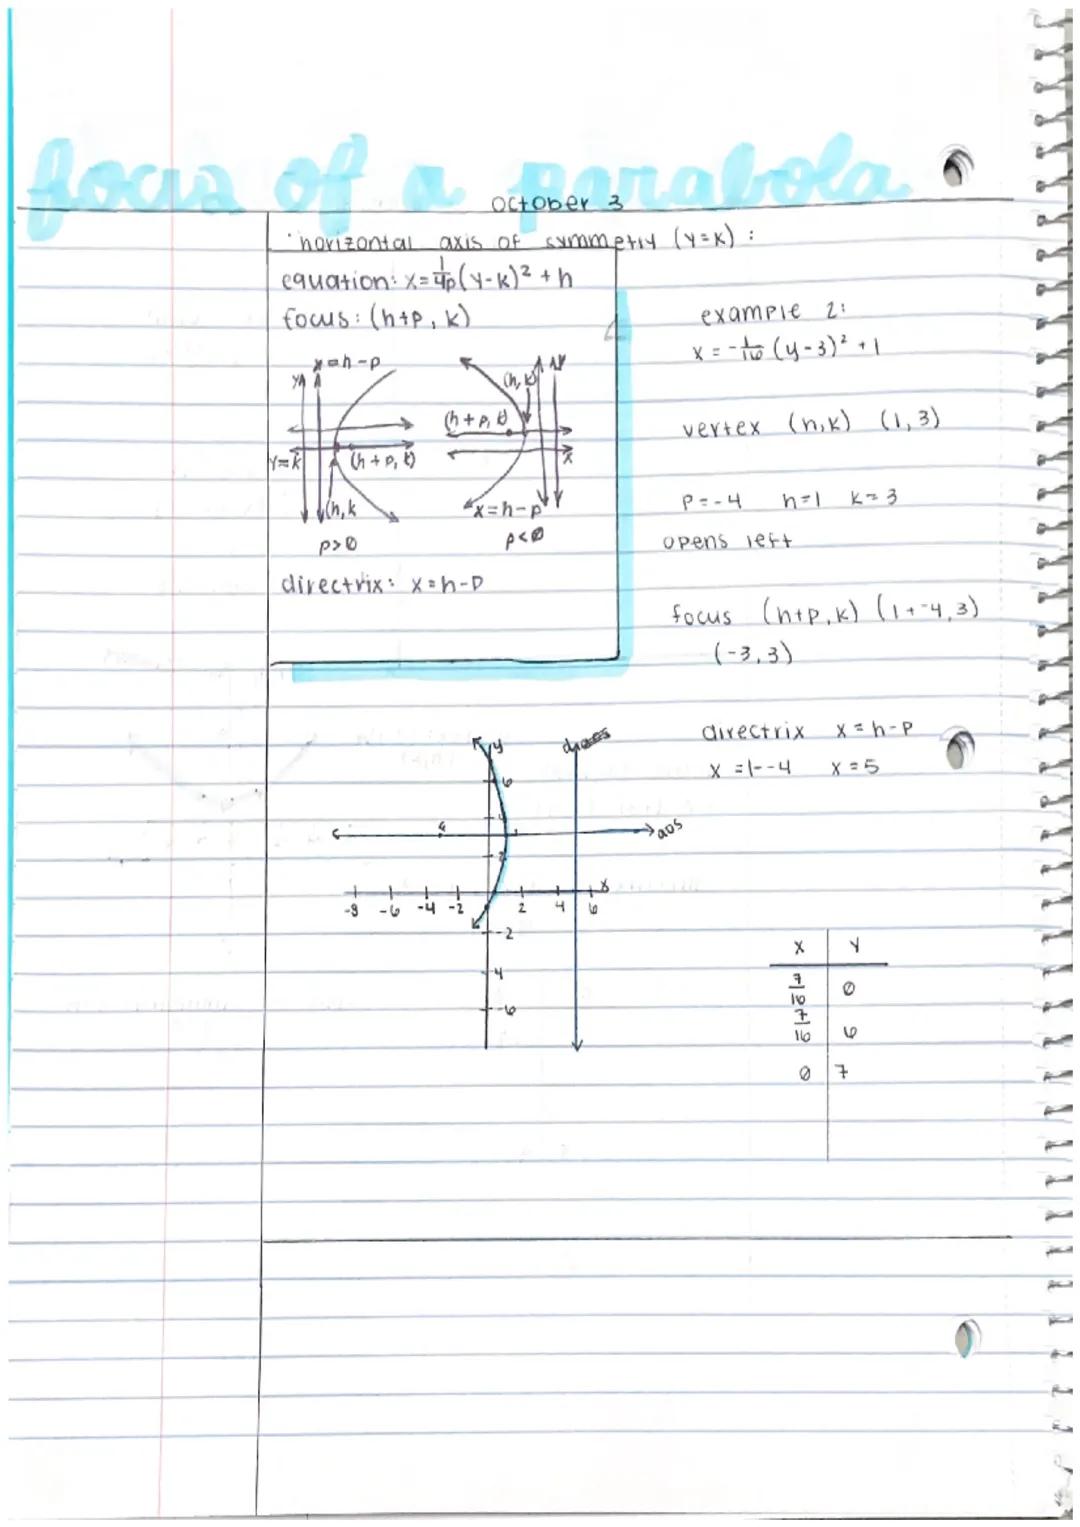 focus of a parabola
october 3
· horizontal axis of symmetry (y=k) :
equation: x=1/4p(y-k)² + h
focus: (h+p, k)
x=h-p
y
y=k
(h+p, k)
(h,k
p>0
(h,k)
y
(h+p, k)
x
x=h-p
p<0
directrix: x=h-p
example 2:
x = -1/16 (y-3)² + 1
vertex (h,k) (1,3)
p=-4 h=1 k=3
opens left
focus (h+p,k) (1+-4,3)
(-3,3)
directrix x=h-p
x =1--4 x=5
y
6
4
2
aos
-8 -6 -4 -2 2 4 6 x
-2
-4
-6
x y
7/16 0
7/16 6
0 7